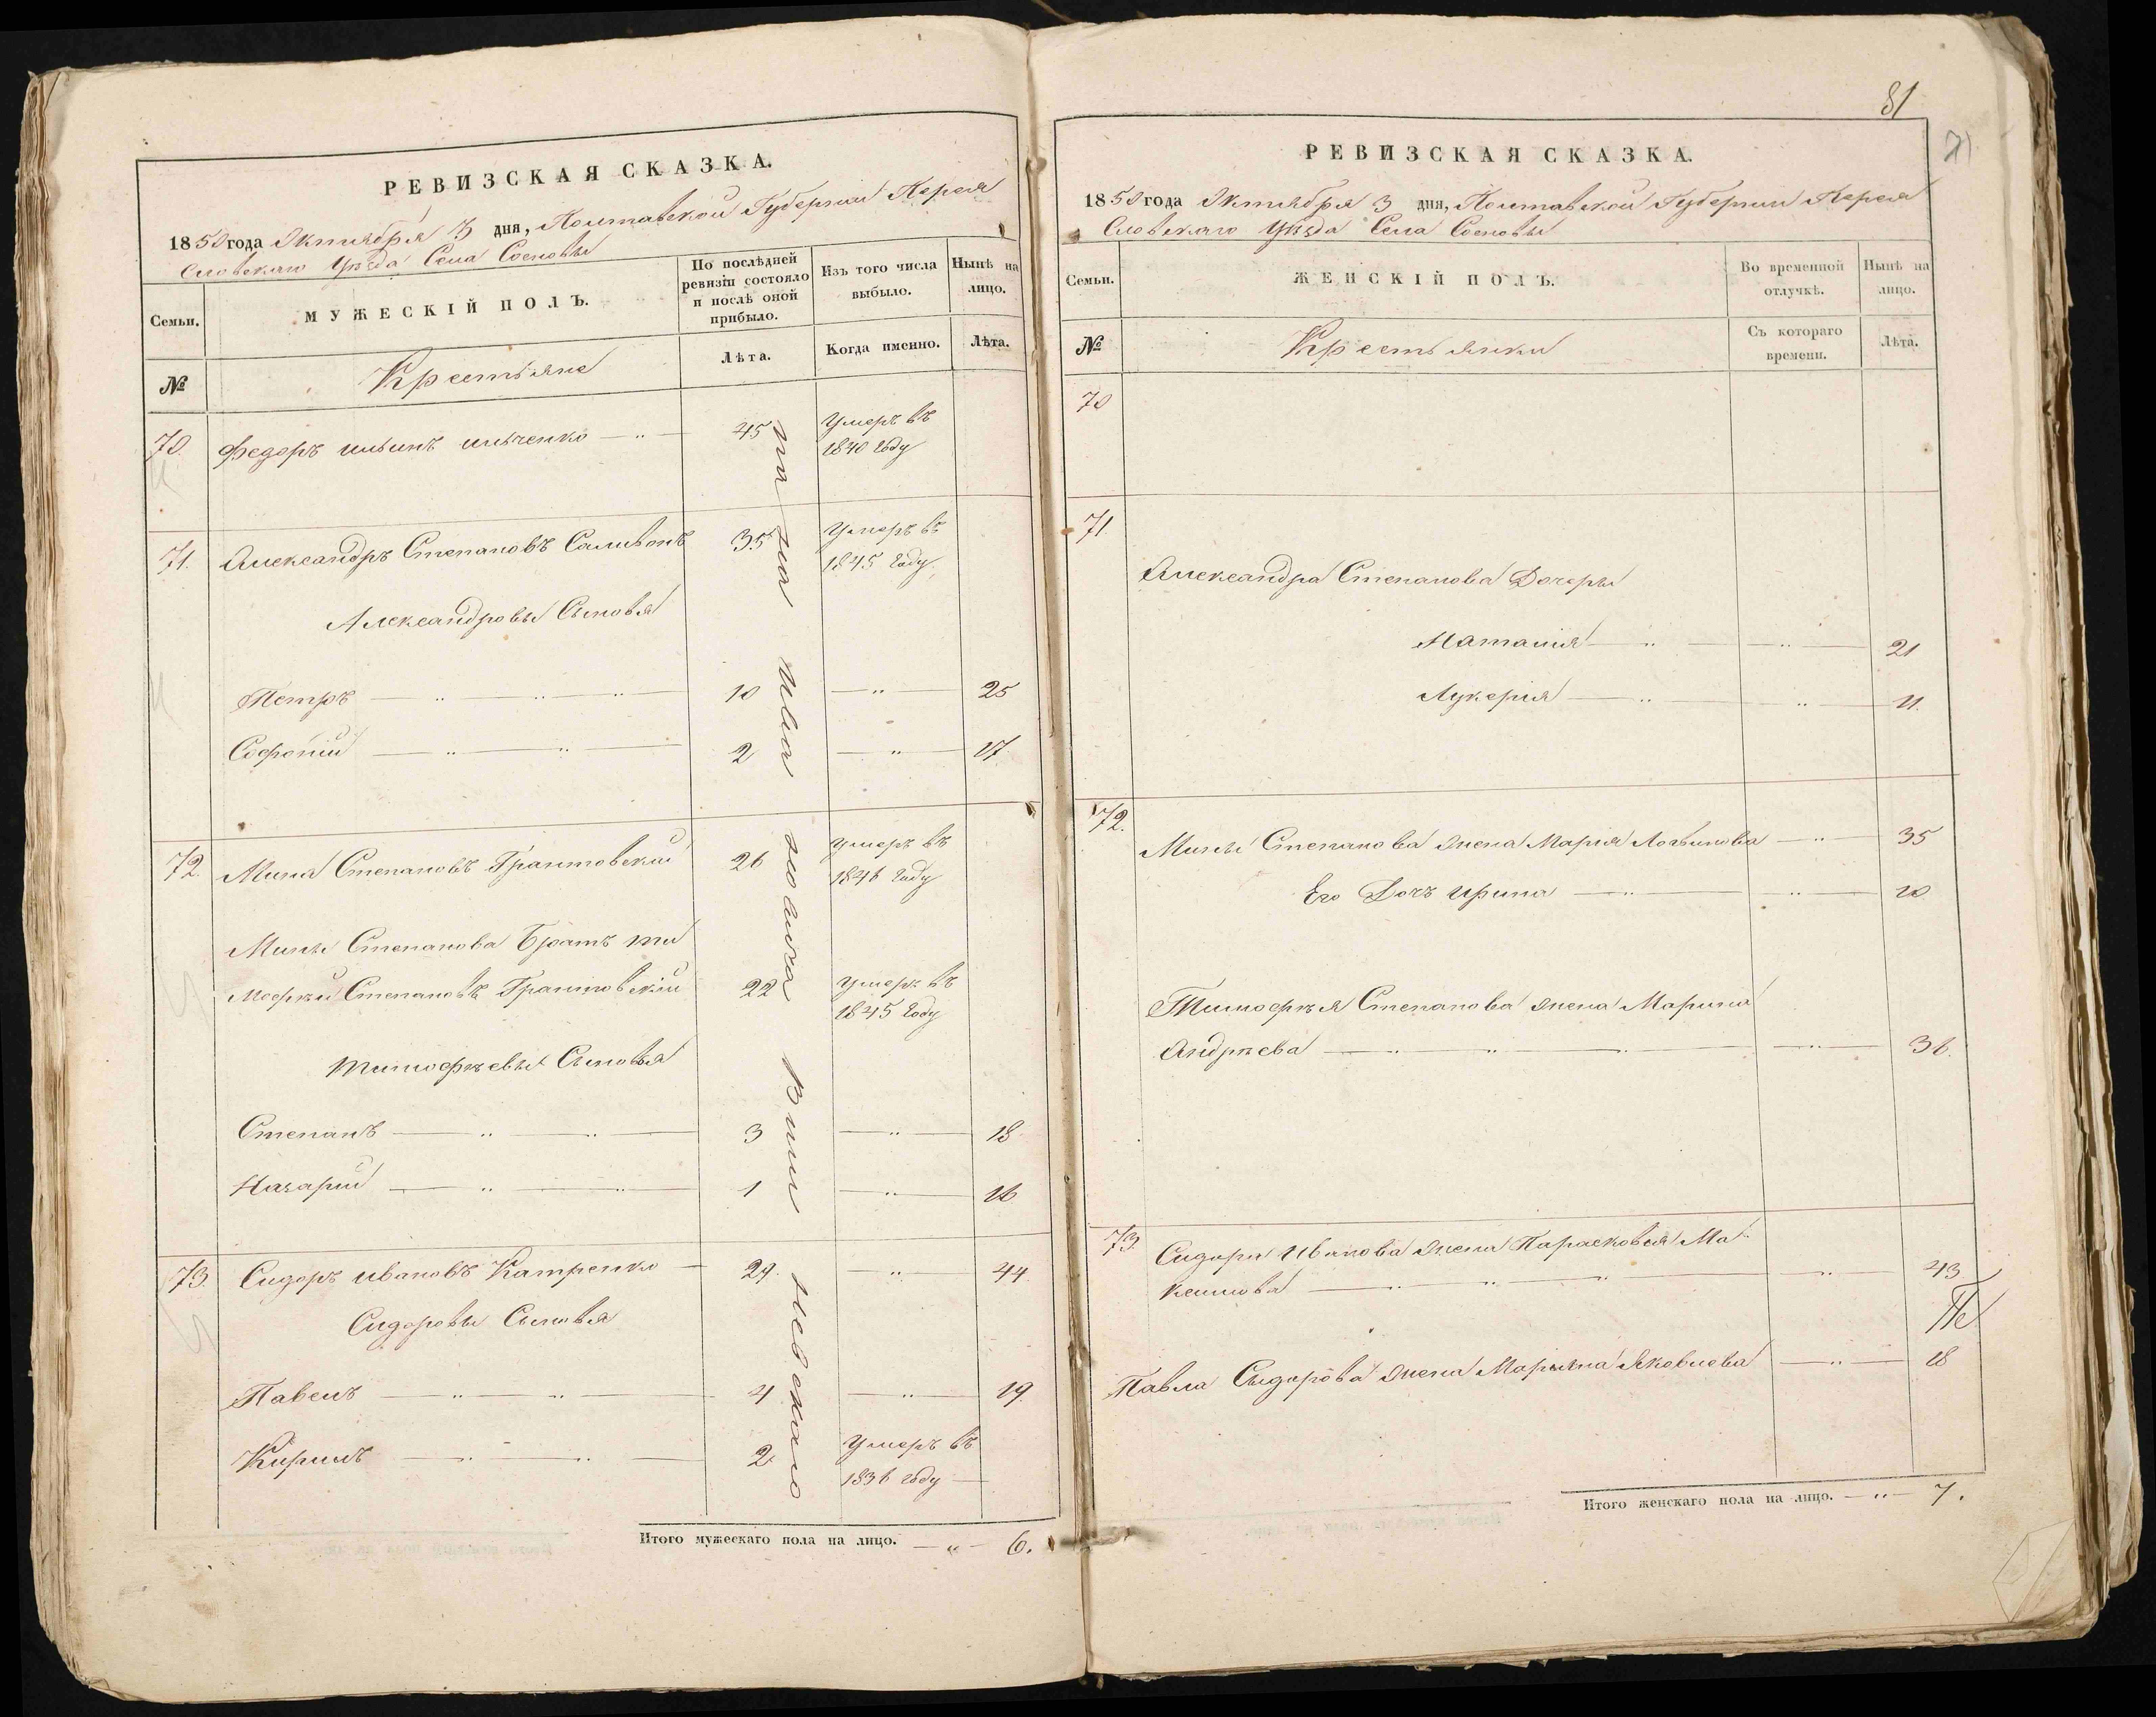 РЕВИЗСКАЯ СКАЗКА.
1850 года Октября 3 дня, Полтавской Губернии Перея
словскаго Уѣзда Села Сосновы
Семьи.
МУЖЕСКІЙ ПОЛЪ.
По послѣдней
ревизіи состояло
и послѣ оной
прибыло.
Изъ того числа
выбыло.
Нынѣ на
лицо.
№
Крестьяне
Лѣта.
Когда именно.
Лѣта.
70. Федоръ ильинъ ильченко — " — 45 Умеръ въ
1840 году
71. Александръ Степановъ Саливонъ 35 Умеръ въ
1845 году
Александровы Сыновья
Петръ — " — " — " — 10 — " — 25
Софоній — " — " — 2 — " — 17.
72. Мина Степановъ Грантовскій 26 Умеръ въ
1846 году
Мины Степанова Братъ ти
мофѣй Степановъ Грантовскій 22 Умеръ въ
1845 году
тимофѣевы Сыновья
Степанъ — " — " — 3 — " — 18
Назарій — " — " — 1 — " — 16
73. Сидоръ ивановъ Катренко — 29. — " — 44
Сидоровы Сыновья
Павелъ — " — " — 4 — " — 19.
Кирилъ — " — " — 2. Умеръ въ
1836 году —
Итого мужескаго пола на лицо. — " — 6.
81
71
РЕВИЗСКАЯ СКАЗКА.
1850 года Октября 3 дня, Полтавской Губернии Перея
словскаго Уѣзда Села Сосновы
Семьи.
ЖЕНСКІЙ ПОЛЪ.
Во временной
отлучкѣ.
Нынѣ на
лицо.
№
Крестьянки
Съ котораго
времени.
Лѣта.
70
71.
Александра Степанова Дочеры
Наталія — " — " — 21
Лукерія — " — " — 11.
72.
Мины Степанова жена Марія Логвинова — " — 35
Его Дочъ Ирина — " — " — 10
Тимофѣя Степанова жена Марина
Андрѣева — " — " — " — " — 36.
73. Сидора Иванова жена Парасковія Ма
ксимова — " — " — " — " — 43
Павла Сидорова жена Марьяна Яковлева — " — 18
Итого женскаго пола на лицо. — " — 7.